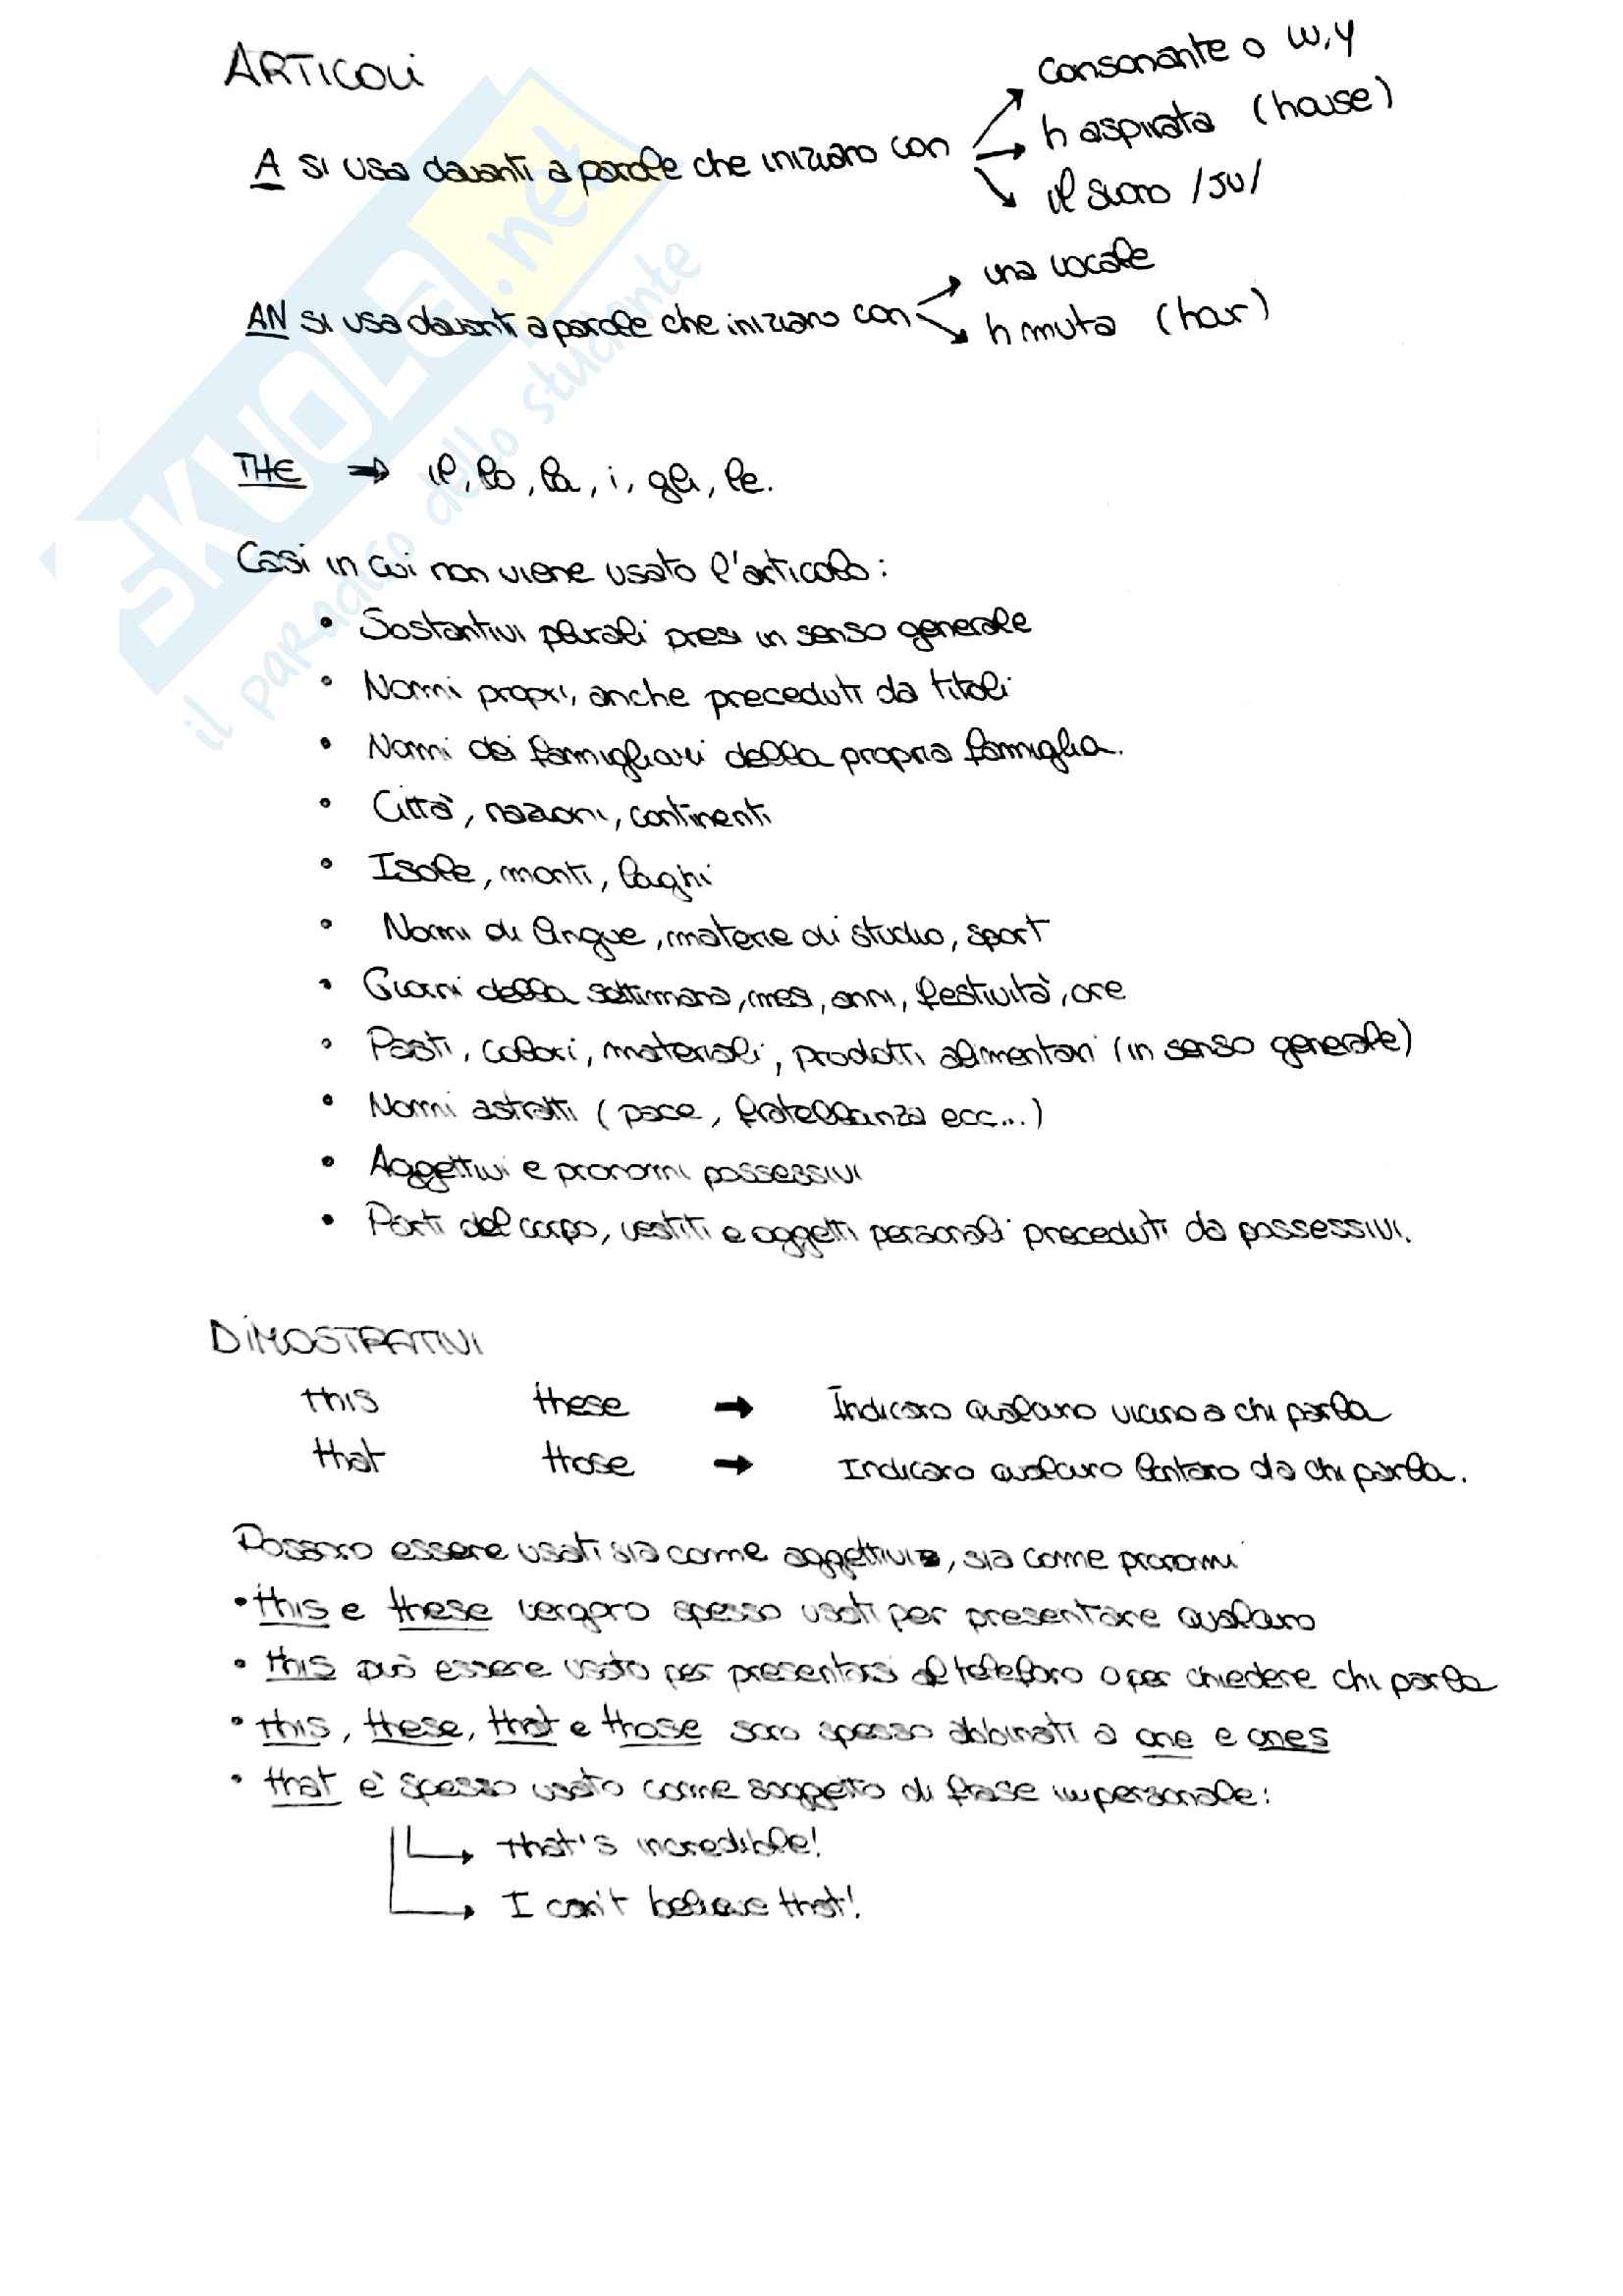 ARTICOLI
A si usa davanti a parole che iniziano con → consonante o w, y
→ h aspirata (house)
→ il suono /ju/
AN si usa davanti a parole che iniziano con → una vocale
→ h muta (hour)
THE → il, lo, la, i, gli, le.
Casi in cui non viene usato l'articolo:
• Sostantivi plurali presi in senso generale
• Nomi propri, anche preceduti da titoli
• Nomi dei famigliari della propria famiglia.
• Città, nazioni, continenti
• Isole, monti, laghi
• Nomi di lingue, materie di studio, sport
• Giorni della settimana, mesi, anni, festività, ore
• Pasti, colori, materiali, prodotti alimentari (in senso generale)
• Nomi astratti (pace, fratellanza ecc...)
• Aggettivi e pronomi possessivi
• Parti del corpo, vestiti e oggetti personali preceduti da possessivi.
DIMOSTRATIVI
this these → Indicano qualcuno vicino a chi parla
that those → Indicano qualcuno lontano da chi parla.
Possono essere usati sia come aggettivi, sia come pronomi
• this e these vengono spesso usati per presentare qualcuno
• this può essere usato per presentarsi al telefono o per chiedere chi parla
• this, these, that e those sono spesso abbinati a one e ones
• that è spesso usato come soggetto di frase impersonale:
→ that's incredible!
→ I can't believe that!
SKUOLA.net
il paradiso dello studente